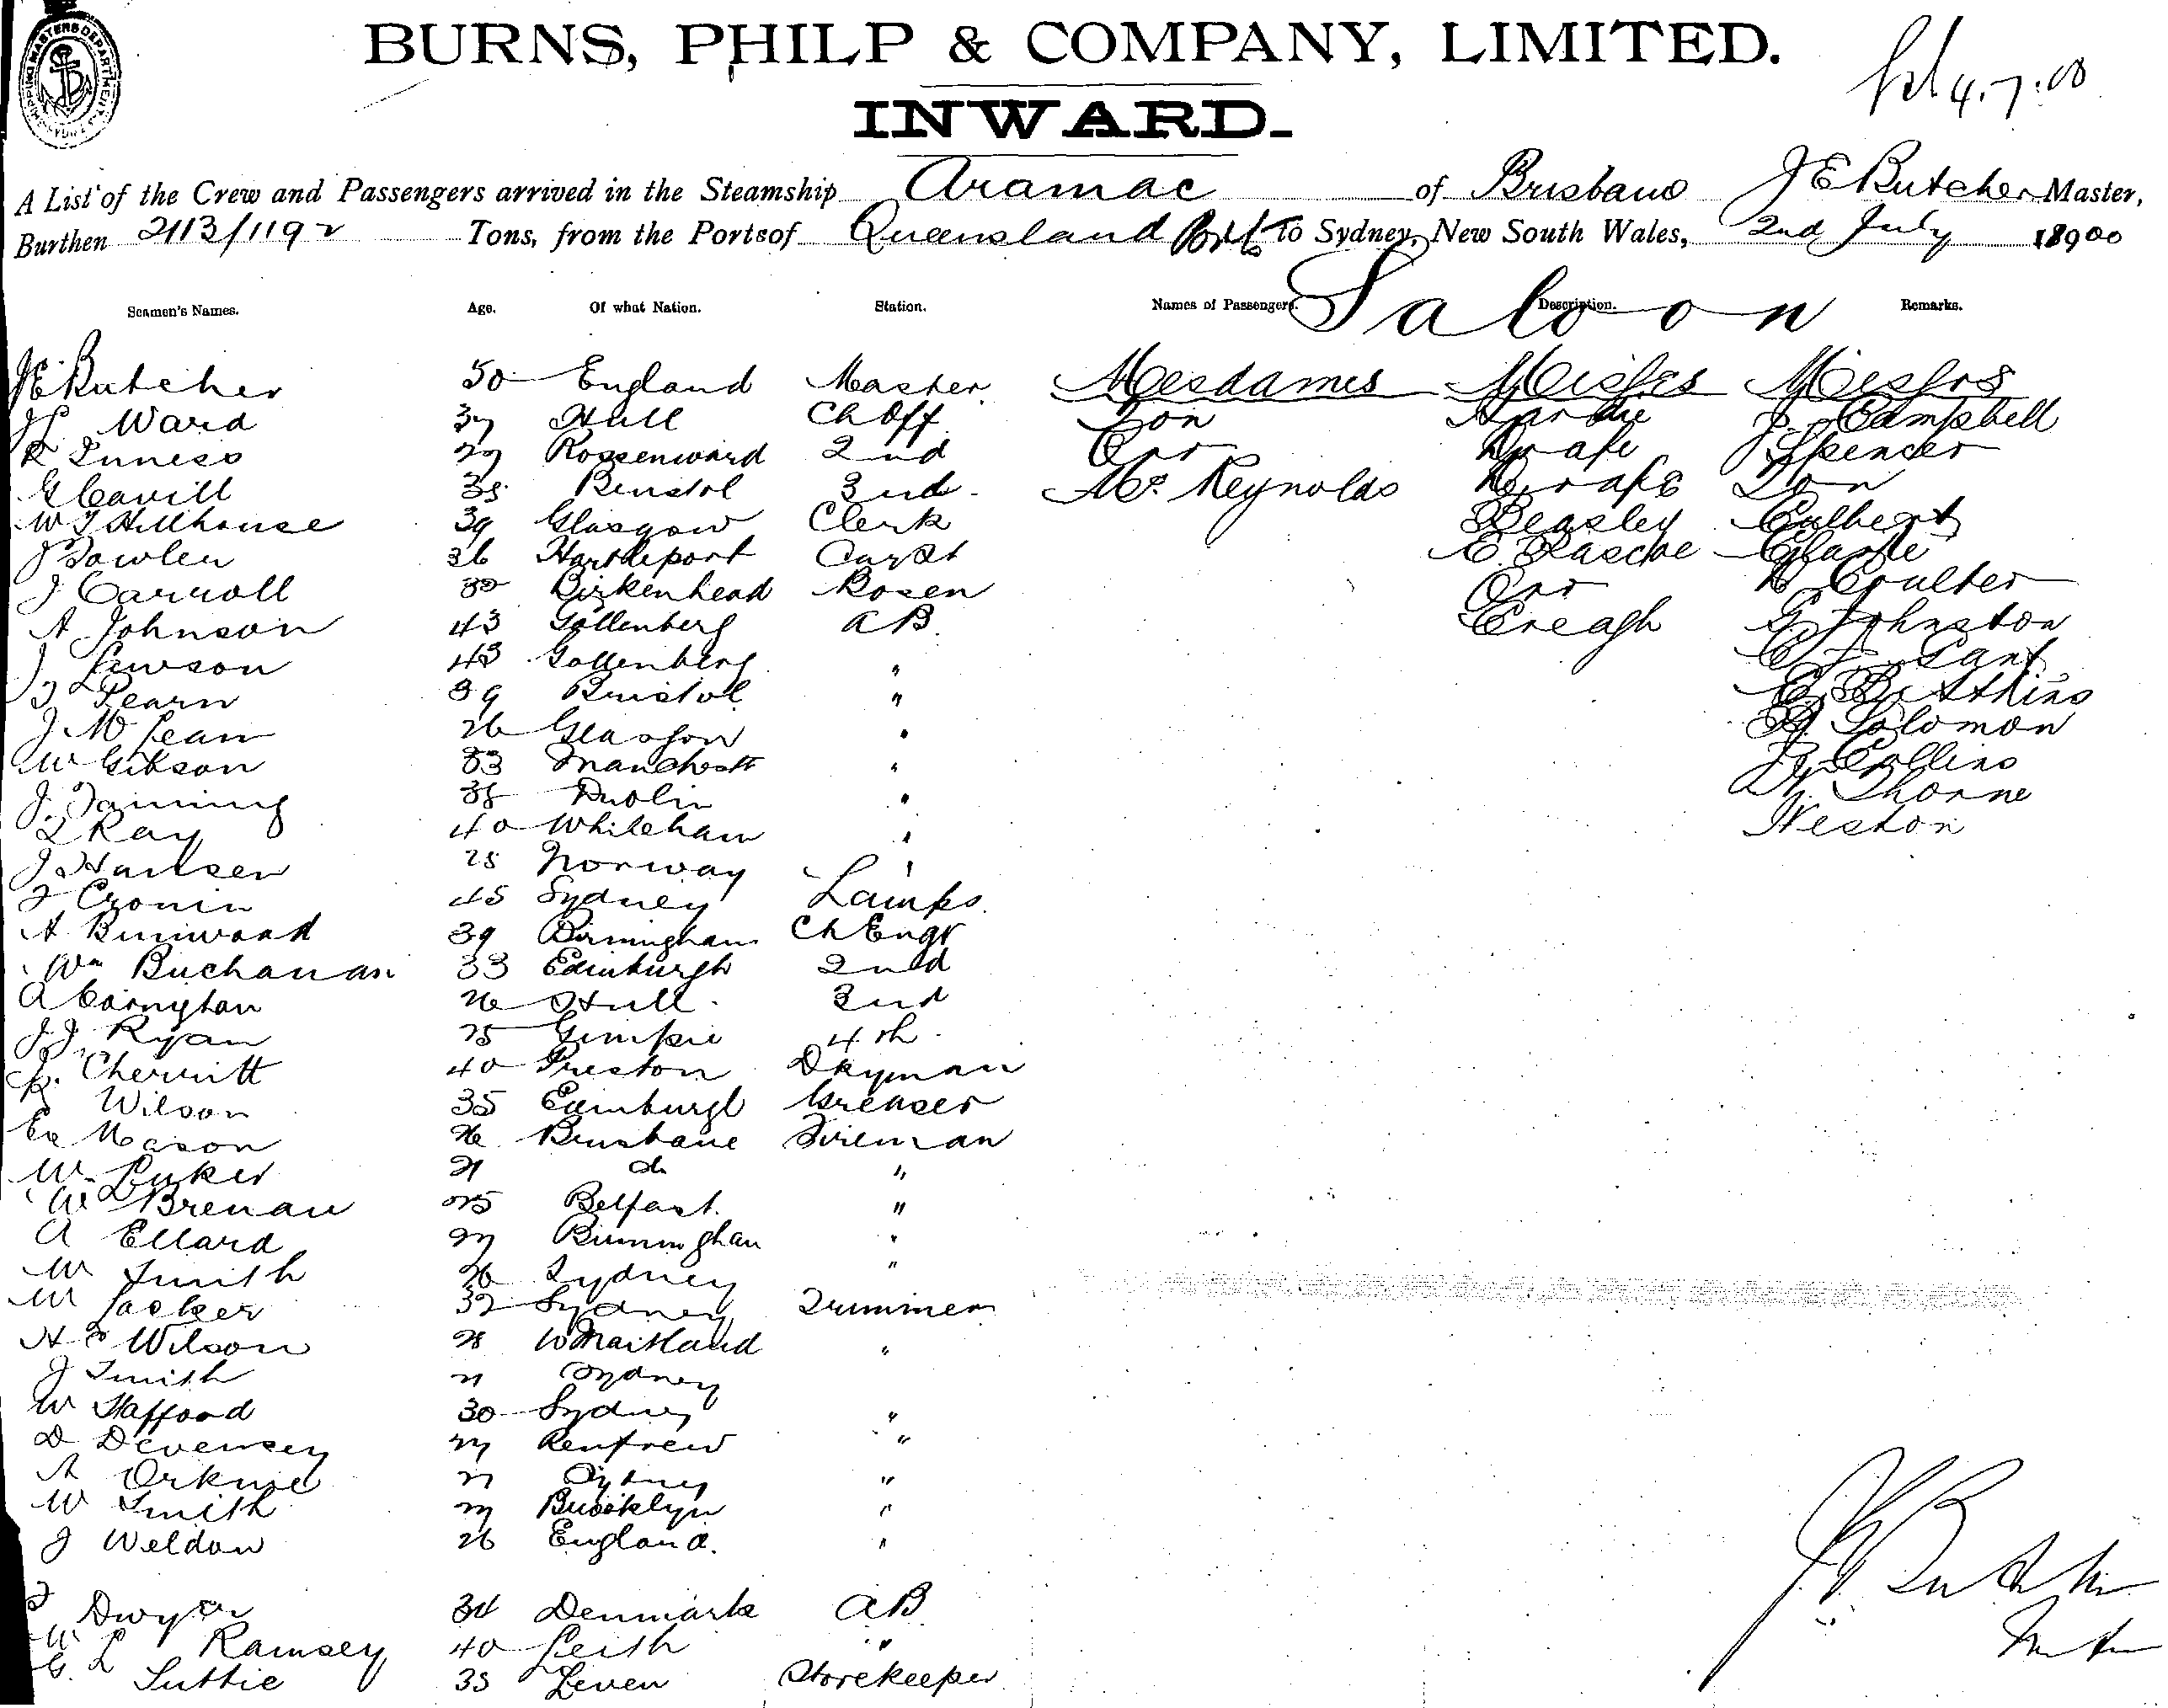 BURNS, PHILP & COMPANY, LIMITED.
4.7.00
INWARD.
A List of the Crew and Passengers arrived in the Steamship Aramac of Brisbane J E Butcher Master,
Burthen 2113/1192 Tons, from the Ports of Queensland Ports to Sydney, New South Wales, 2nd July 1900
Seamen's Names. Age. Of what Nation. Station. Names of Passengers. Description. Remarks.
Saloon
J E Butcher 50 England Master Mesdames Misses Messrs
Ward 37 Hull Ch Off Zon Hardie J. Campbell
R Inness 29 2nd Orr Drape Spencer
G Cavill 38 Bristol 3rd McReynolds Drape Zon
W J Hillhouse 39 Glasgow Clerk Beasley Culbert
J Fowler 36 Hartlepool Carpt E. Rascoe
J Carroll 32 Birkenhead Bosen Orr Coulter
A Johnson 43 Gottenberg AB Creagh G Johnston
J Lawson 43 Gottenberg "
J Pearn 39 Bristol " Atkins
J McLean 26 Glasgow " Solomon
W Gibson 33 " Collins
J. 38 Dublin " Thorne
Ray 40 Whitehaven " Weston
J Hansen 28 Norway "
J Cronin 45 Sydney Lamps
A 39 Birmingham Ch Engr
Wm Buchanan 33 Edinburgh 2nd
A 26 Hull 3rd
J J Ryan 25 Gimpie 4th
Cherritt 40 Preston Dkyman
Wilson 35 Edinburgh Greaser
Ed Mason 26 Brisbane Fireman
W 21 do "
W Brenan 25 Belfast "
A Ellard 27 Birmingham "
W Smith 26 Sydney "
W 32 Sydney Trimmer
H E Wilson 28 W Maitland "
J Smith 21 Sydney
W Stafford 30 Sydney "
D Devensey 27 Renfrew "
A Orknie 21 Sydney "
W Smith 27 Brooklyn "
J Weldon 26 England. "
J Dwyer 34 Denmark AB
W L Ramsey 40 Leith "
G. Suttie 35 Leven Storekeeper
J E Butcher
Master